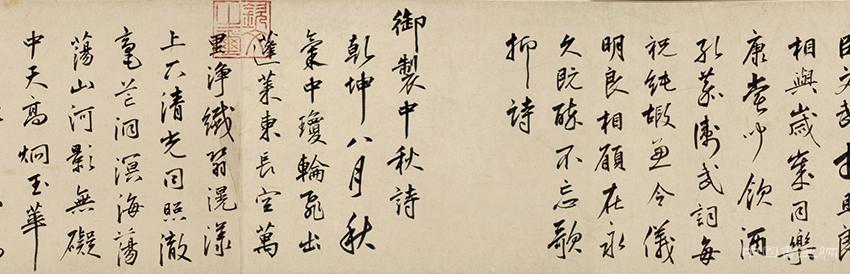 臣文武才且良
相與歲同樂
康飲酒
孔嘉衛武詞每
祝純嘏兼令儀
明良相顧在永
久既醉不忘歌
抑詩
御製中秋詩
乾坤八月秋
氣中瓊輪飛出
蓬萊東長空萬
里淨纖翳滉漾
上下清光同照徹
毫芒洞溟海蕩
蕩山河影無礙
中天高炯玉華